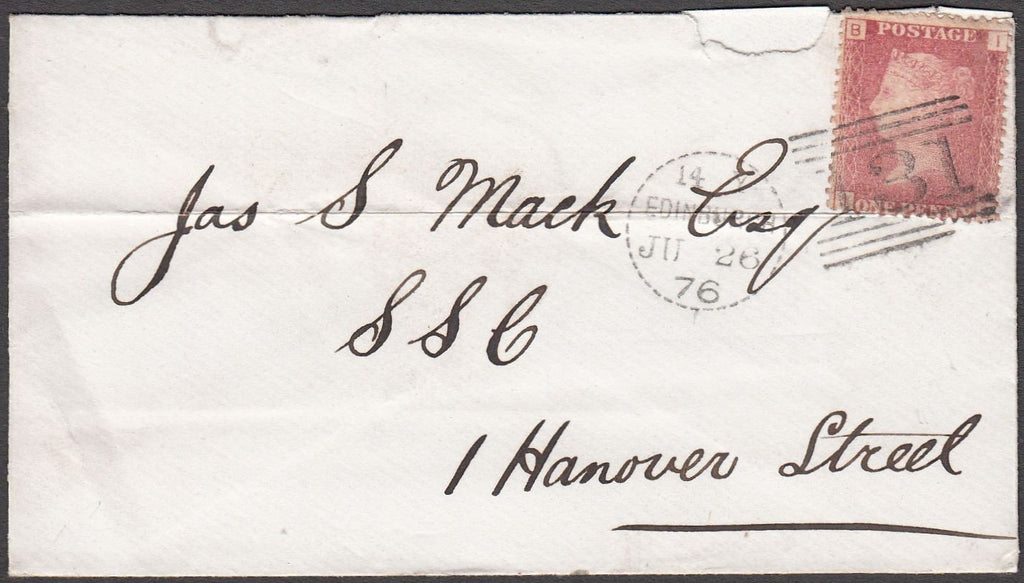 B POSTAGE I
31
ONE PENNY
14
EDINBURGH
JU 26
76
Jas S Mack Esq
SSC
1 Hanover Street